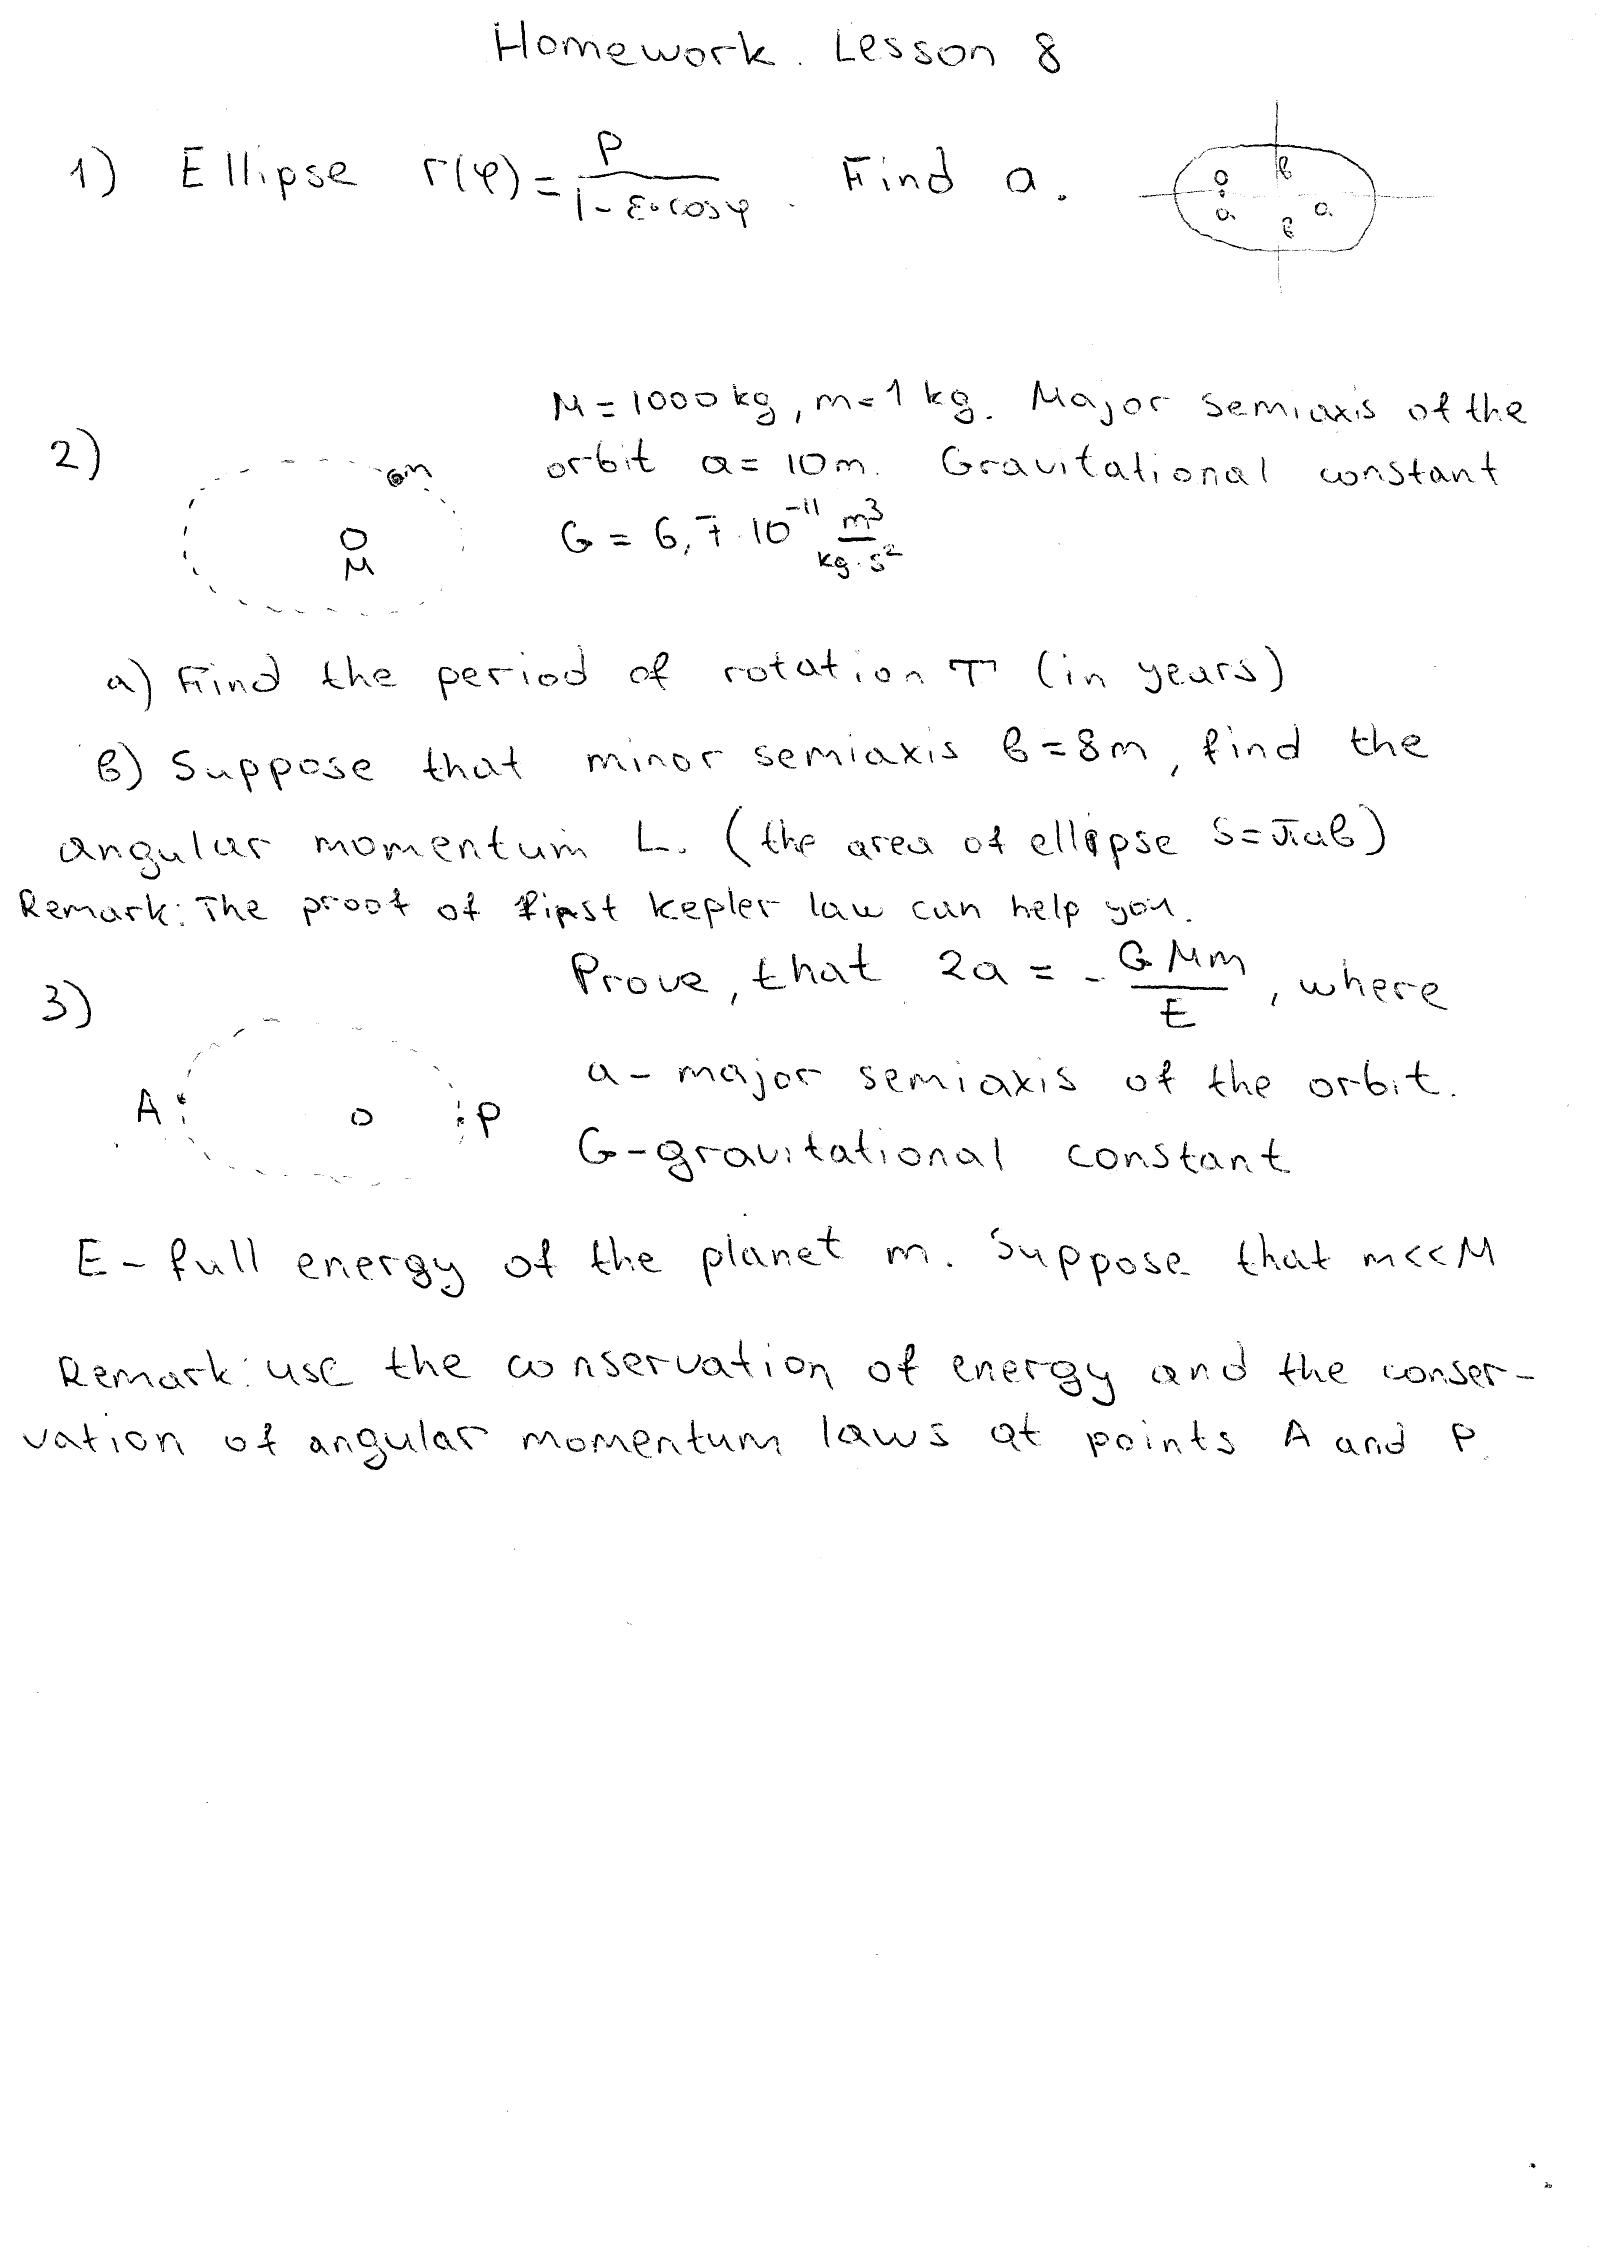 Homework. Lesson 8
1) Ellipse r(φ) = P / (1 - ε·cosφ). Find a.
o в
a a
в
M = 1000 kg, m = 1 kg. Major semiaxis of the
2)
m
orbit a = 10m. Gravitational constant
M
G = 6,7·10^-11 m^3 / (kg·s^2)
a) Find the period of rotation T (in years)
в) Suppose that minor semiaxis в = 8m, find the
angular momentum L. (the area of ellipse S = πaв)
Remark: The proof of first Kepler law can help you.
3)
Prove, that 2a = - GMm / E, where
a - major semiaxis of the orbit.
A P
G - gravitational constant
E - full energy of the planet m. Suppose that m << M
Remark: use the conservation of energy and the conser-
vation of angular momentum laws at points A and P.